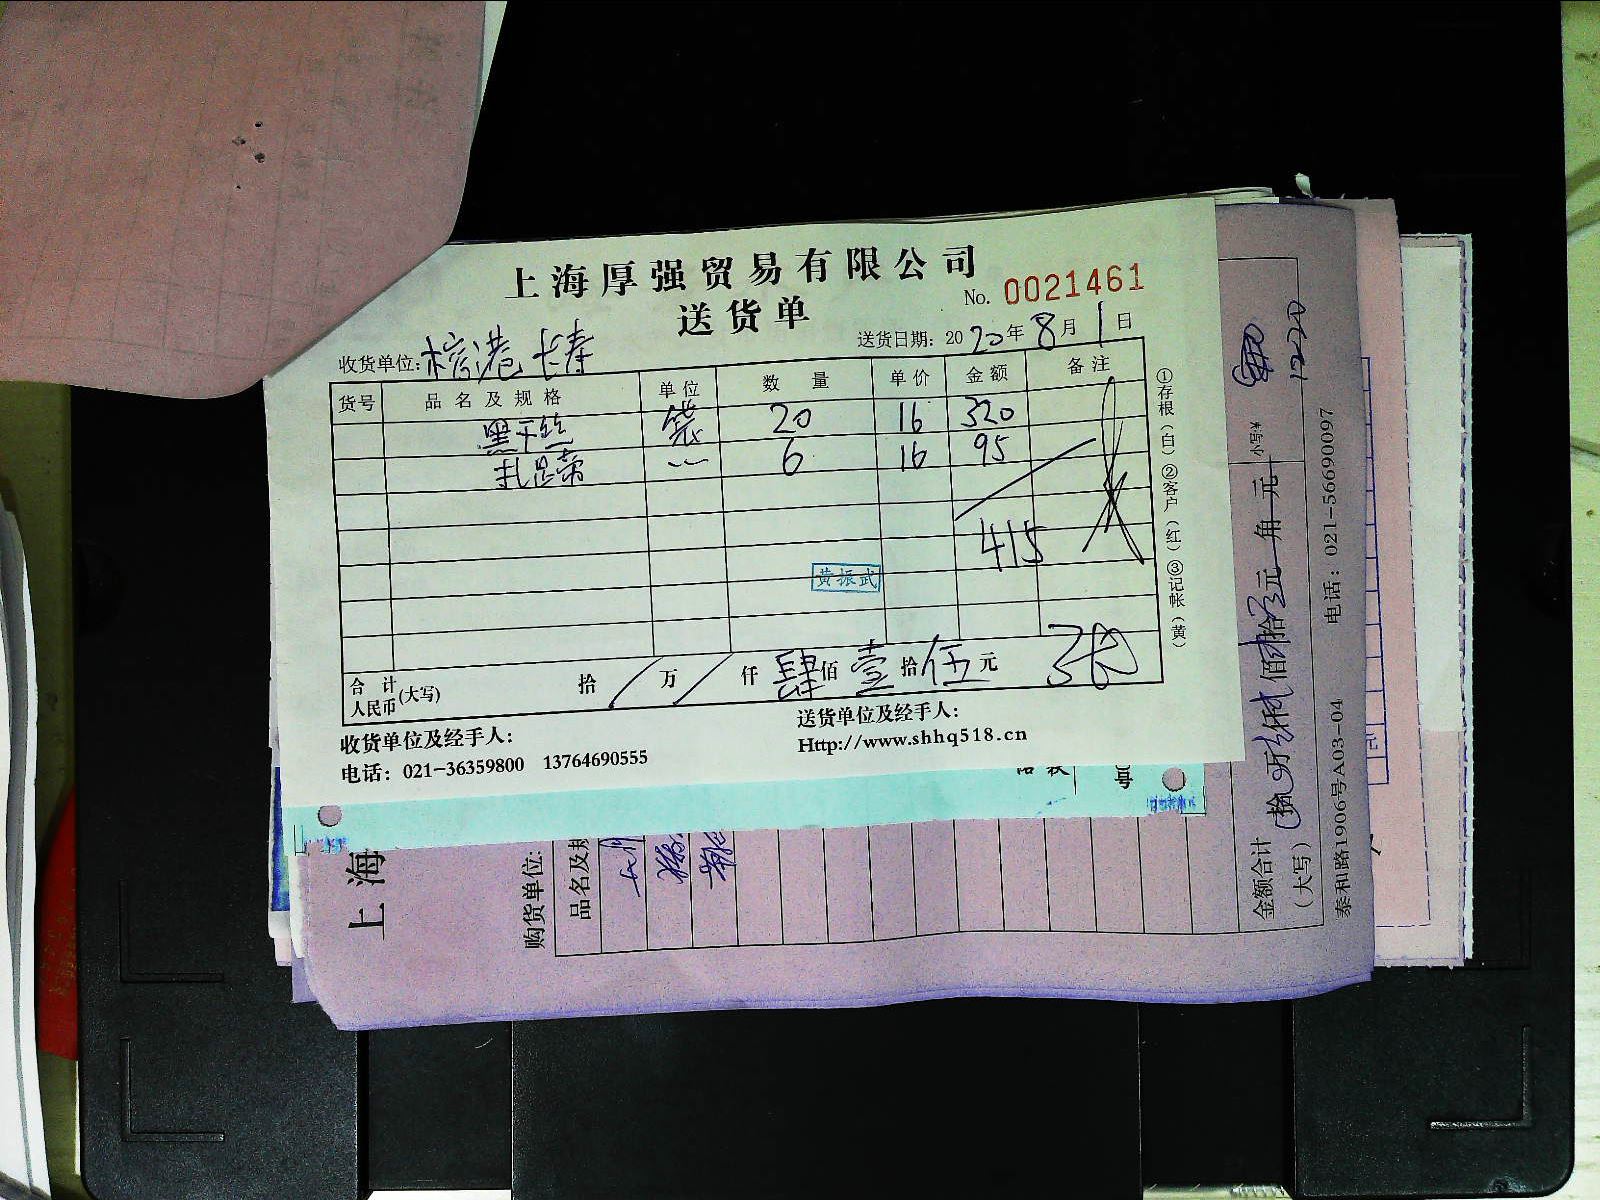 上海厚强贸易有限公司
送货单
No. 0021461
收货单位: 长寿
送货日期: 2020年8月1日
货号 品名及规格 单位 数量 单价 金额 备注
袋 20 16 320
6 16 95
415
黄振武
合计人民币(大写) 拾 / 万 / 仟 肆佰 壹拾 伍元
收货单位及经手人:
送货单位及经手人:
电话: 021-36359800 13764690555
Http://www.shhq518.cn
①存根(白)②客户(红)③记帐(黄)
上海
购货单位:
品名及规
金额合计
(大写)
佰 拾 元 角
小写¥
1220
泰和路1906号A03-04 电话: 021-56690097